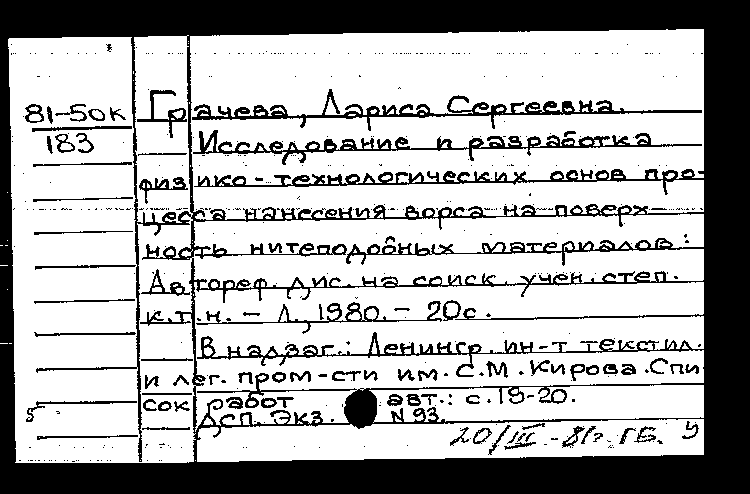 81-50к Грачева, Лариса Сергеевна.
183 Исследование и разработка
физико-технологических основ про-
цесса нанесения ворса на поверх-
ность нитеподобных материалов:
Автореф. дис. на соиск. учен. степ.
к.т.н. - Л., 1980. - 20с.
В надзаг.: Ленингр. ин-т текстил.
и лег. пром-сти им. С.М. Кирова. Спи
сок работ авт.: с.19-20.
5 ДСП. Экз. N 93.
20/III-81г. ГБ. У